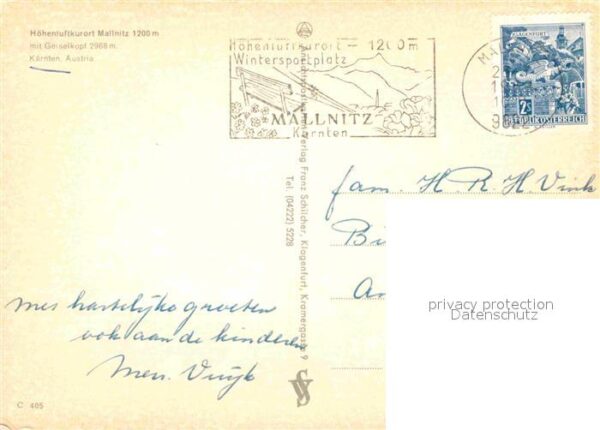 Höhenluftkurort Mallnitz 1200 m
mit Geiselkopf 2968 m.
Kärnten, Austria
Höhenluftkurort - 1200m
Wintersportplatz
MALLNITZ
Kärnten
KLAGENFURT
2S
REPUBLIK ÖSTERREICH
MA
9822
Ansichtskartenverlag Franz Schilcher, Klagenfurt, Kramergasse 9
Tel. (04222) 5228
fam. H. R. H. Vink
Bi
Am
privacy protection
Datenschutz
mes hartelijke groeten
ook aan de kinderen
C 405